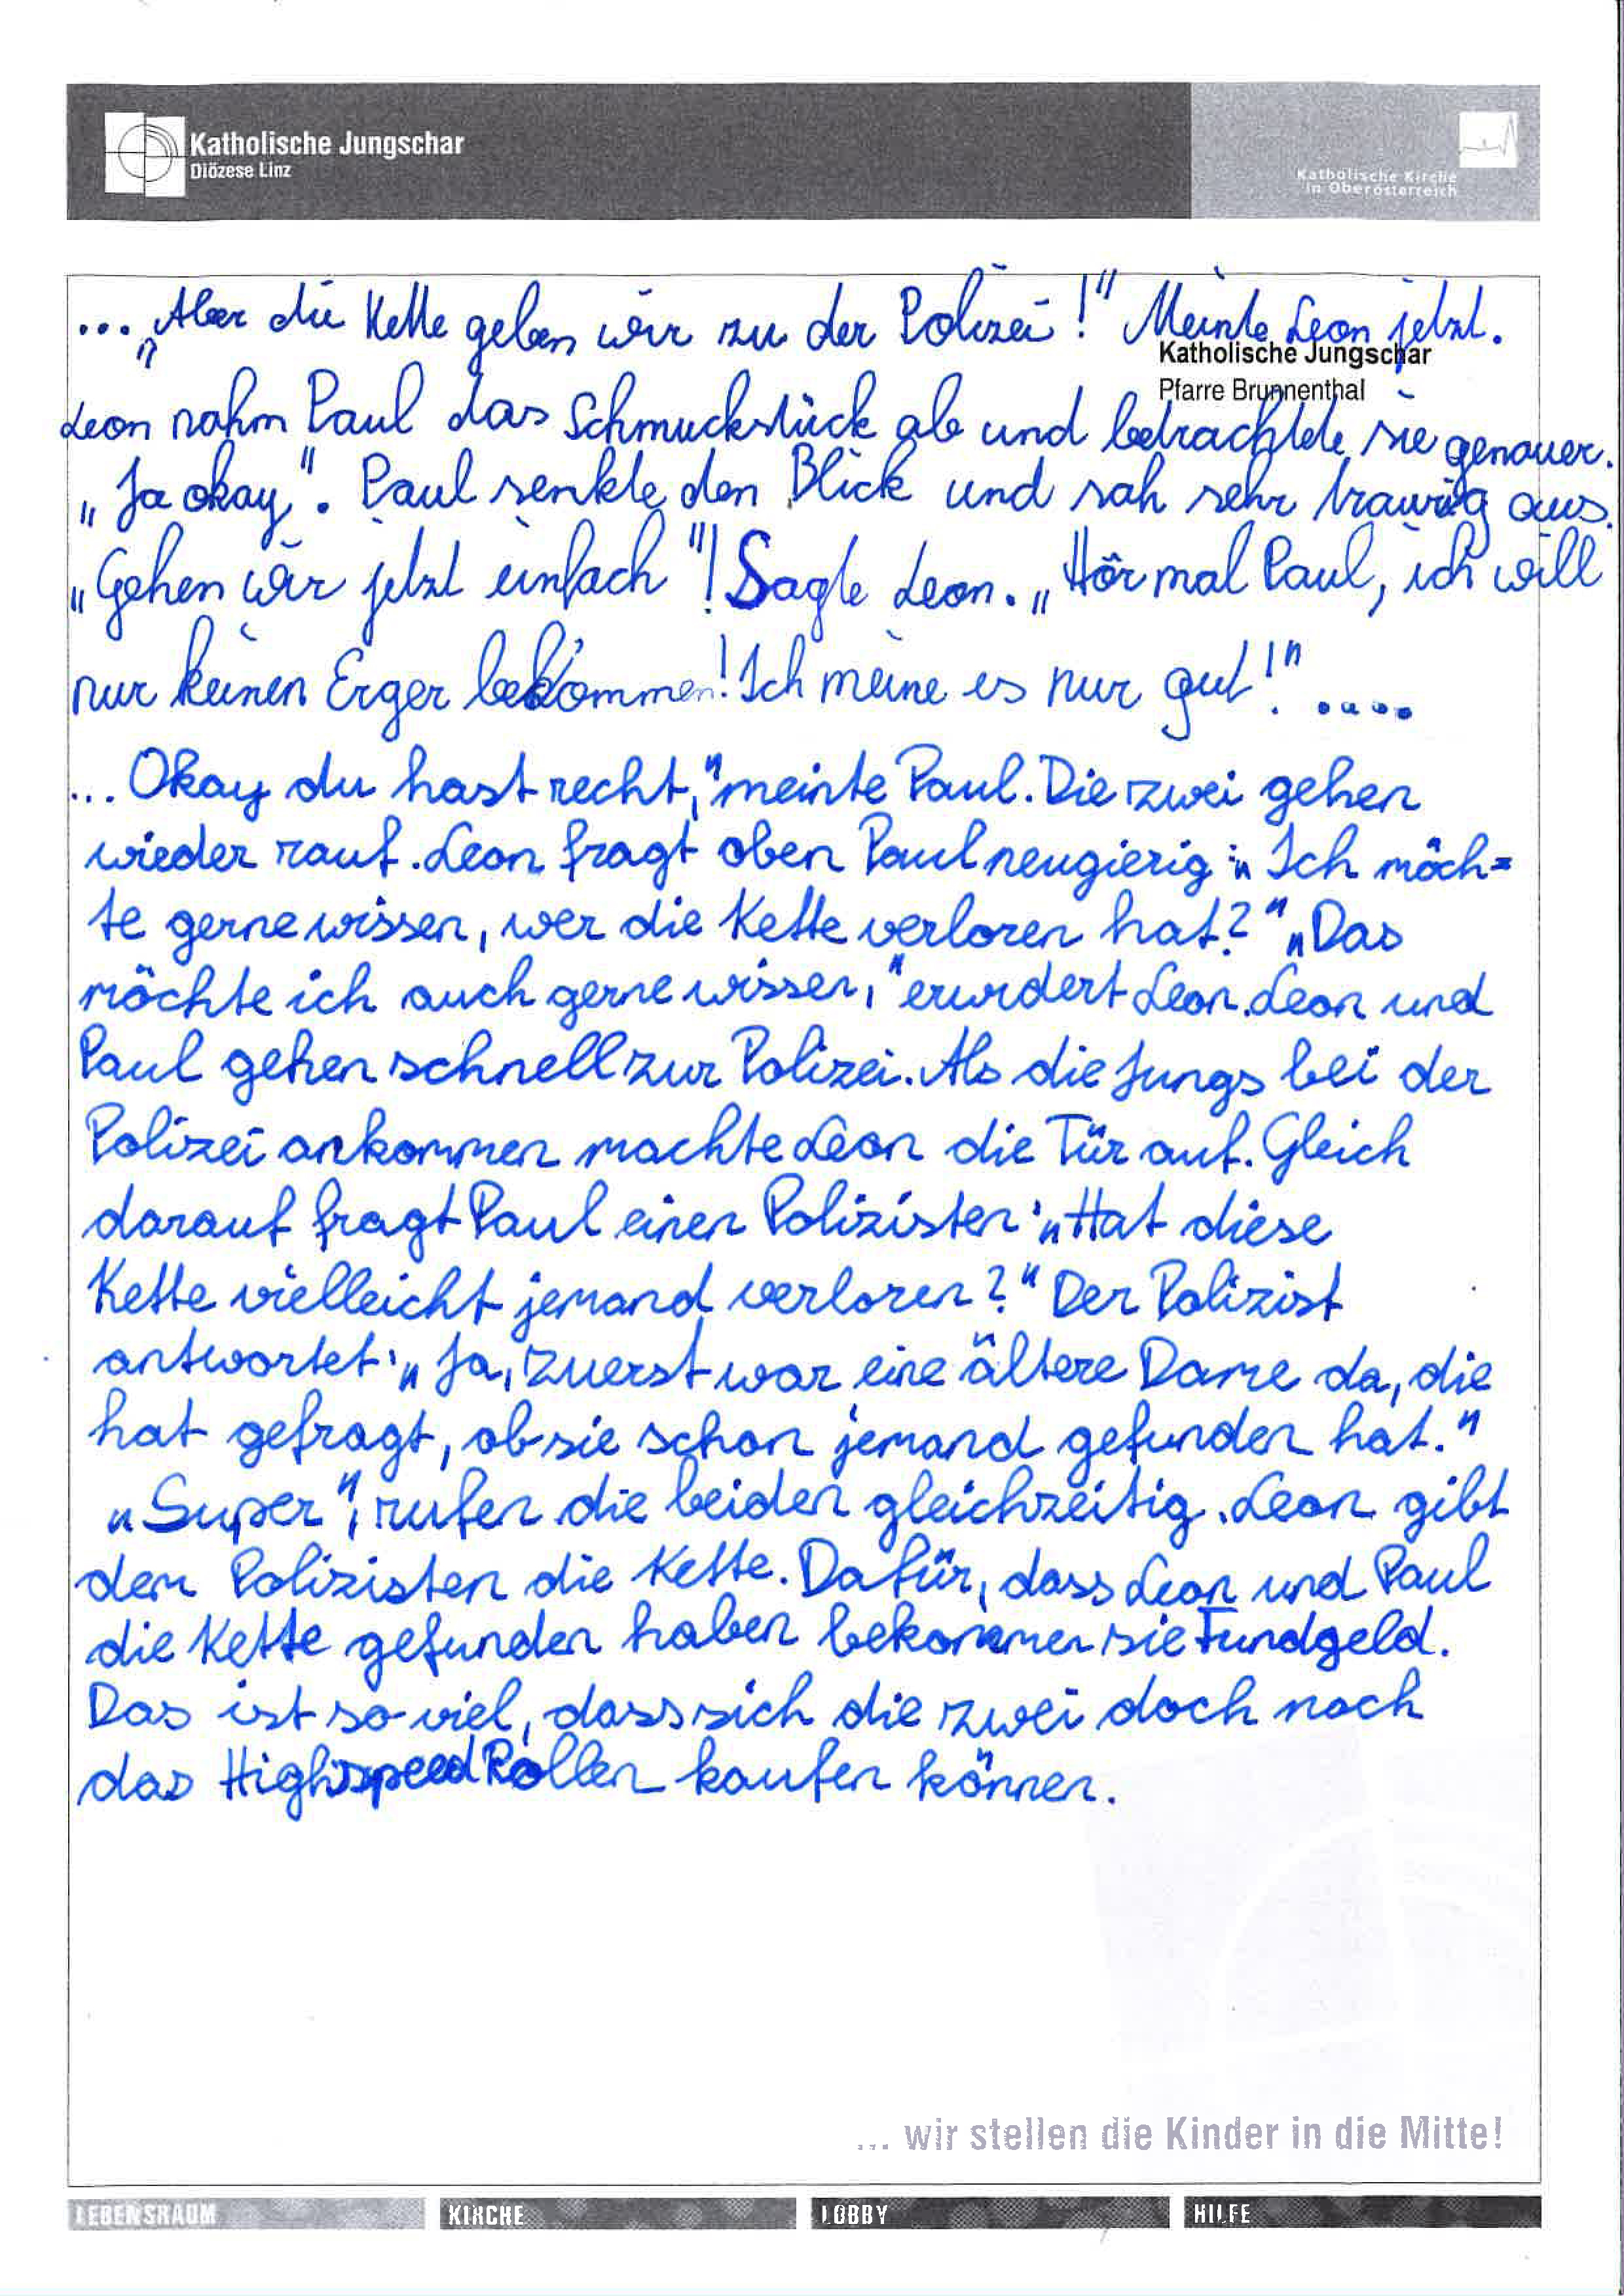 Katholische Jungschar
Diözese Linz
Katholische Kirche
in Oberösterreich
... „Aber die Kette geben wir zu der Polizei!" Meinte Leon jetzt.
Katholische Jungschar
Pfarre Brunnenthal
Leon nahm Paul das Schmuckstück ab und betrachtete sie genauer.
„Ja okay". Paul senkte den Blick und sah sehr traurig aus.
„Gehen wir jetzt einfach"! Sagte Leon. „Hör mal Paul, ich will
nur keinen Erger bekommen! Ich meine es nur gut!" ....
... Okay du hast recht," meinte Paul. Die zwei gehen
wieder rauf. Leon fragt oben Paul neugierig: „Ich möch=
te gerne wissen, wer die Kette verloren hat?" „Das
möchte ich auch gerne wissen," erwidert Leon. Leon und
Paul gehen schnell zur Polizei. Als die Jungs bei der
Polizei ankommen machte Leon die Tür auf. Gleich
darauf fragt Paul einen Polizisten: „Hat diese
Kette vielleicht jemand verloren?" Der Polizist
antwortet: „Ja, zuerst war eine ältere Dame da, die
hat gefragt, ob sie schon jemand gefunden hat."
„Super", rufen die beiden gleichzeitig. Leon gibt
dem Polizisten die Kette. Dafür, dass Leon und Paul
die Kette gefunden haben bekommen sie Fundgeld.
Das ist so viel, dass sich die zwei doch noch
das Highspeed Rollen kaufen können.
... wir stellen die Kinder in die Mitte!
LEBENSRAUM KIRCHE LOBBY HILFE